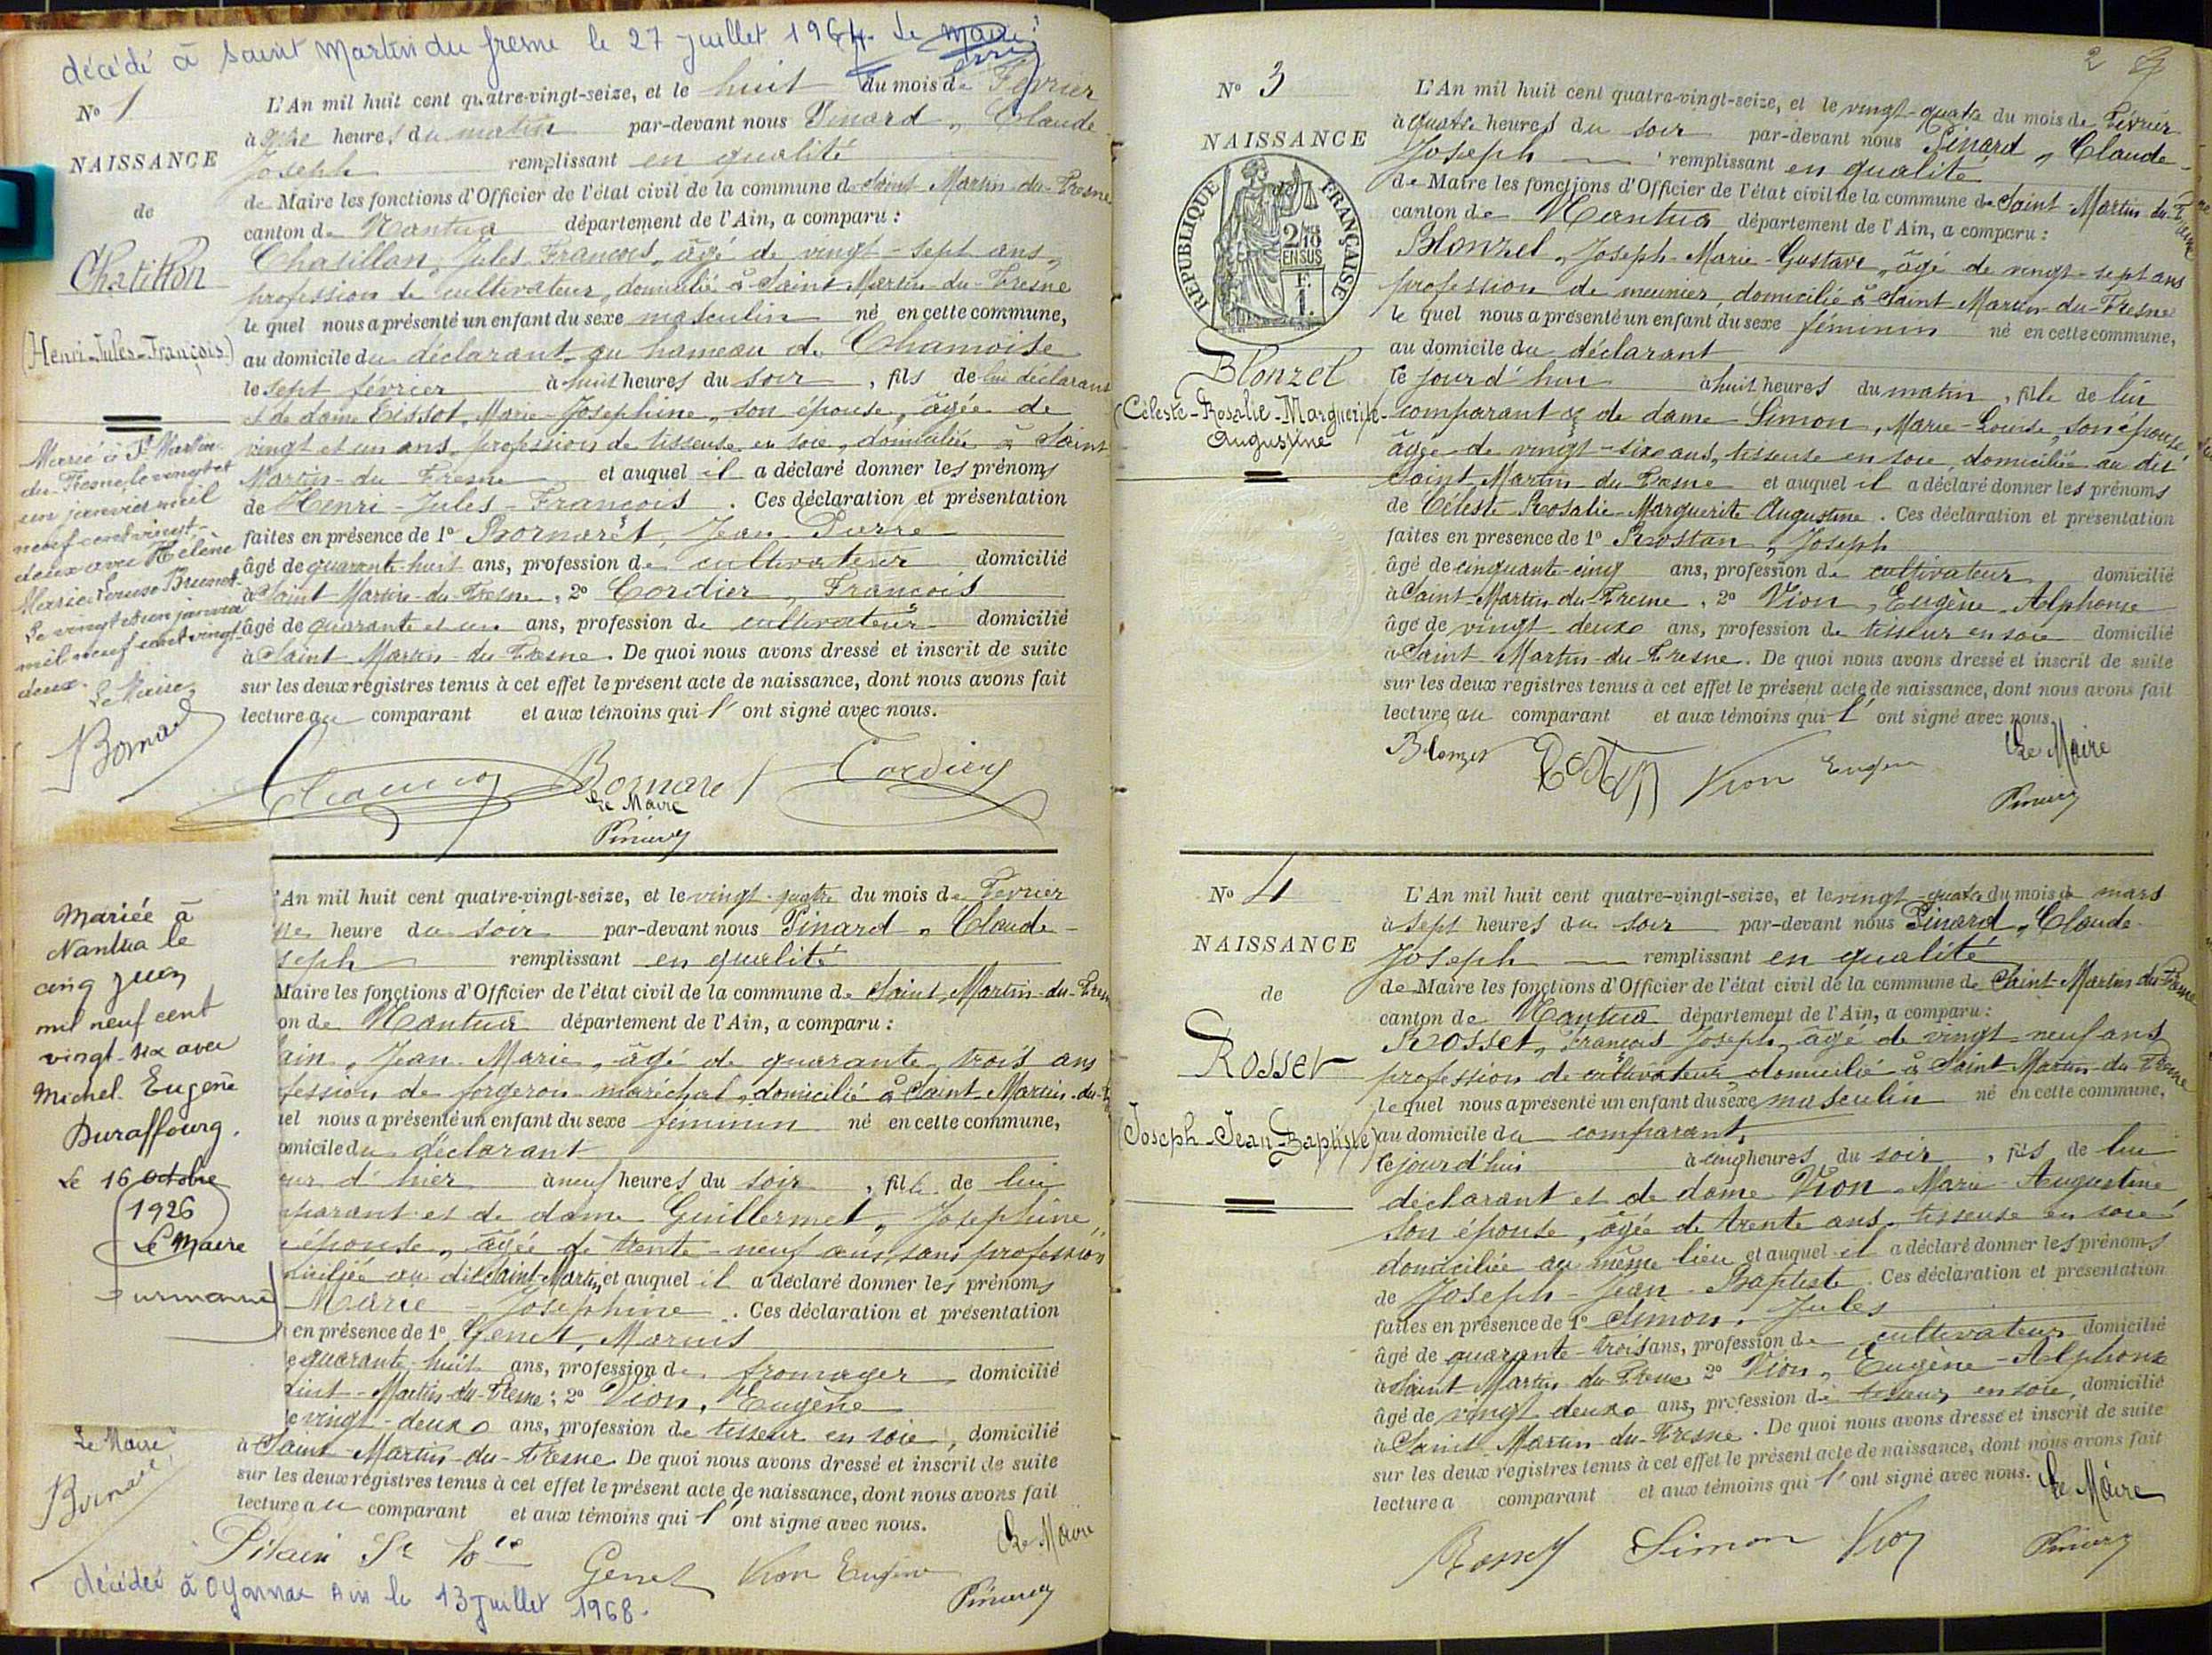 décédé à Saint Martin du fresne le 27 juillet 1964. Le Maire
Nº 1
NAISSANCE
de
Chatillon
(Henri-Jules-François)
Marié à St Martin-
du-Fresne, le vingt et
un janvier mil
neuf cent vingt-
deux avec Hélène
Marie-Louise Brunet.
Le vingt et un janvier
mil neuf cent vingt
deux.
Le Maire
Bornaret
L'An mil huit cent quatre-vingt-seize, et le huit du mois de Février
à heures du matin par-devant nous Pinard, Claude-
Joseph remplissant en qualité
de Maire les fonctions d'Officier de l'état civil de la commune de Saint-Martin-du-Fresne
canton de Nantua département de l'Ain, a comparu :
Chatillon, Jules François, âgé de vingt-sept ans,
profession de cultivateur, domicilié à Saint-Martin-du-Fresne
le quel nous a présenté un enfant du sexe masculin né en cette commune,
au domicile du déclarant au hameau de Chamoise
le sept février à huit heures du soir, fils de lui déclarant
et de dame Tissot, Marie-Joséphine, son épouse, âgée de
vingt et un ans, profession de tisseuse en soie, domiciliée à Saint
Martin-du-Fresne et auquel il a déclaré donner les prénoms
de Henri-Jules-François. Ces déclaration et présentation
faites en présence de 1º Bornarêt, Jean-Pierre
âgé de quarante-huit ans, profession de cultivateur domicilié
à Saint-Martin-du-Fresne, 2º Cordier, François
âgé de quarante et un ans, profession de cultivateur domicilié
à Saint-Martin-du-Fresne. De quoi nous avons dressé et inscrit de suite
sur les deux registres tenus à cet effet le présent acte de naissance, dont nous avons fait
lecture au comparant et aux témoins qui l'ont signé avec nous.
Bornaret Cordier
Le Maire
Pinard
Mariée à
Nantua le
cinq juin
mil neuf cent
vingt-six avec
Michel Eugène
Duraffourg.
Le 16 octobre
1926
Le Maire
Le Maire
'An mil huit cent quatre-vingt-seize, et le vingt-quatre du mois de Février
ne heure du soir par-devant nous Pinard, Claude-
seph remplissant en qualité
Maire les fonctions d'Officier de l'état civil de la commune de Saint-Martin-du-Fresne
on de Nantua département de l'Ain, a comparu :
ain, Jean-Marie, âgé de quarante-trois ans
fession de forgeron-maréchal, domicilié à Saint-Martin-du-
uel nous a présenté un enfant du sexe féminin né en cette commune,
omicile du déclarant
our d'hier à neuf heures du soir, fille de lui
parant et de dame Guillermet, Joséphine,
épouse, âgée de trente-neuf ans, sans profession
iciliée au dit Saint-Martin et auquel il a déclaré donner les prénoms
Marie-Joséphine. Ces déclaration et présentation
en présence de 1º Genet, Marius
e quarante-huit ans, profession de fromager domicilié
aint-Martin-du-Fresne; 2º Vion, Eugène
e vingt-deux ans, profession de tisseur en soie, domicilié
à Saint-Martin-du-Fresne. De quoi nous avons dressé et inscrit de suite
sur les deux registres tenus à cet effet le présent acte de naissance, dont nous avons fait
lecture au comparant et aux témoins qui l'ont signé avec nous.
Genet Vion Eugène Le Maire
Pinard
décédée à Oyonnax Ain le 13 juillet 1968.
2
Nº 3
NAISSANCE
REPUBLIQUE FRANÇAISE
2/10
EN SUS
F.
1.
Blonzel
(Céleste-Rosalie-Marguerite-
Augustine
L'An mil huit cent quatre-vingt-seize, et le vingt-quatre du mois de Février
à quatre heures du soir par-devant nous Pinard, Claude-
Joseph remplissant en qualité
de Maire les fonctions d'Officier de l'état civil de la commune de Saint-Martin-du-Fresne
canton de Nantua département de l'Ain, a comparu :
Blonzel, Joseph-Marie-Gustave, âgé de vingt-sept ans
profession de meunier, domicilié à Saint-Martin-du-Fresne
le quel nous a présenté un enfant du sexe féminin né en cette commune,
au domicile du déclarant
ce jourd'hui à huit heures du matin, fille de lui
comparant & de dame Simon, Marie-Louise, son épouse,
âgée de vingt-six ans, tisseuse en soie, domiciliée au dit
Saint-Martin-du-Fresne et auquel il a déclaré donner les prénoms
de Céleste-Rosalie-Marguerite Augustine. Ces déclaration et présentation
faites en présence de 1º Rostan, Joseph
âgé de cinquante-cinq ans, profession de cultivateur domicilié
à Saint-Martin-du-Fresne, 2º Vion, Eugène-Alphonse
âgé de vingt-deux ans, profession de tisseur en soie domicilié
à Saint-Martin-du-Fresne. De quoi nous avons dressé et inscrit de suite
sur les deux registres tenus à cet effet le présent acte de naissance, dont nous avons fait
lecture au comparant et aux témoins qui l'ont signé avec nous.
Blonzel Vion Eugène Le Maire
Pinard
Nº 4
NAISSANCE
de
Rosset
(Joseph-Jean-Baptiste)
L'An mil huit cent quatre-vingt-seize, et le vingt-quatre du mois de mars
à sept heures du soir par-devant nous Pinard, Claude-
Joseph remplissant en qualité
de Maire les fonctions d'Officier de l'état civil de la commune de Saint-Martin-du-Fresne
canton de Nantua département de l'Ain, a comparu :
Rosset, François Joseph, âgé de vingt-neuf ans
profession de cultivateur domicilié à Saint-Martin-du-Fresne
lequel nous a présenté un enfant du sexe masculin né en cette commune,
au domicile du comparant,
ce jourd'hui à cinq heures du soir, fils de lui
déclarant et de dame Vion, Marie-Augustine
son épouse, âgée de trente ans, tisseuse en soie,
domiciliée au même lieu et auquel il a déclaré donner les prénoms
de Joseph-Jean-Baptiste. Ces déclaration et présentation
faites en présence de 1º Simon, Jules
âgé de quarante-trois ans, profession de cultivateur domicilié
à Saint-Martin-du-Fresne, 2º Vion, Eugène-Alphonse
âgé de vingt-deux ans, profession de tisseur en soie, domicilié
à Saint-Martin-du-Fresne. De quoi nous avons dressé et inscrit de suite
sur les deux registres tenus à cet effet le présent acte de naissance, dont nous avons fait
lecture a comparant et aux témoins qui l'ont signé avec nous.
Rosset Simon Vion Le Maire
Pinard